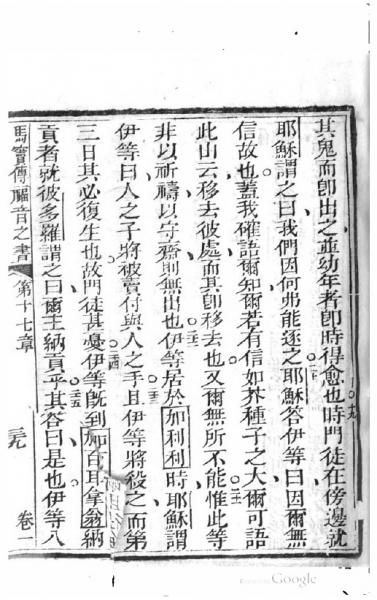 其鬼而即出之並幼年者即時得愈也時門徒在傍邊就
耶穌謂之曰我們因何弗能逐之耶穌答伊等曰因爾無
信故也蓋我確語爾知爾若有信如芥種子之大爾可語
此山云移去彼處而其即移去也又爾無所不能惟此等
非以祈禱以守齋則無出也伊等居於加利利時耶穌謂
伊等曰人之子將被賣付與人之手且伊等將殺之而第
三日其必復生也故門徒甚憂伊等既到加百耳拿翁納
貢者就彼多羅謂之曰爾主納貢乎其答曰是也伊等入
馬竇傳福音之書 第十七章 卷一
Google